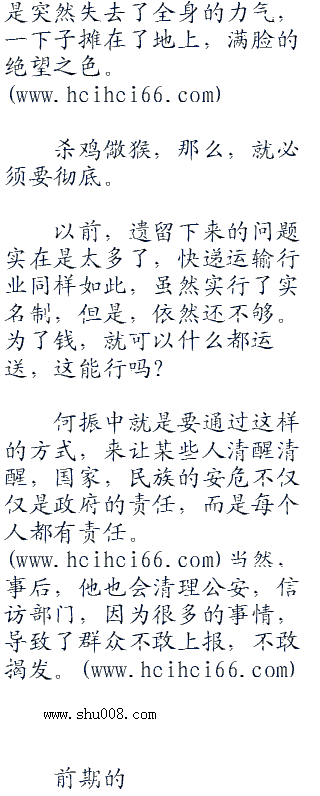 是突然失去了全身的力气，
一下子摊在了地上，满脸的
绝望之色。
(www.hcihci66.com)
杀鸡儆猴，那么，就必
须要彻底。
以前，遗留下来的问题
实在是太多了，快递运输行
业同样如此，虽然实行了实
名制，但是，依然还不够。
为了钱，就可以什么都运
送，这能行吗？
何振中就是要通过这样
的方式，来让某些人清醒清
醒，国家，民族的安危不仅
仅是政府的责任，而是每个
人都有责任。
(www.hcihci66.com)当然，
事后，他也会清理公安，信
访部门，因为很多的事情，
导致了群众不敢上报，不敢
揭发。(www.hcihci66.com)
www.shu008.com
前期的